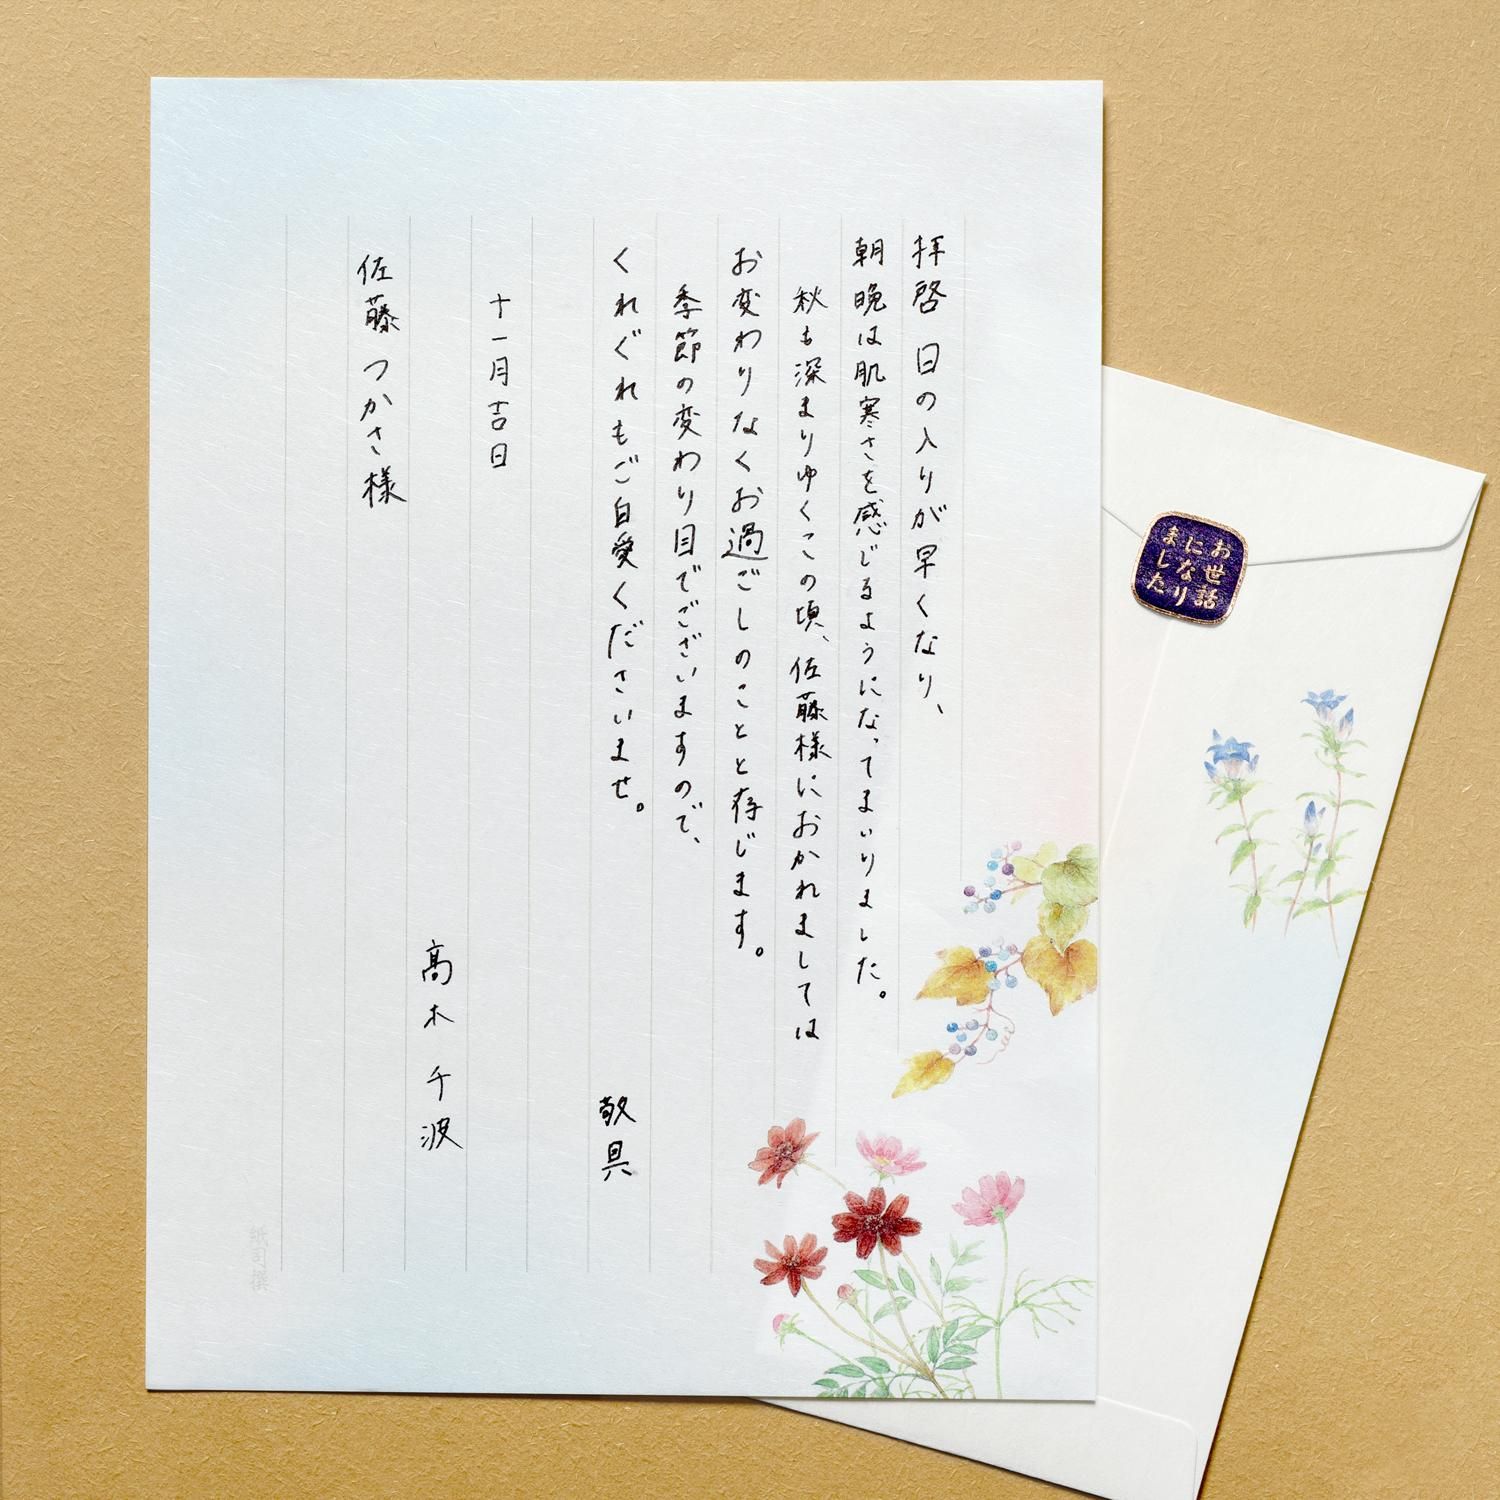 拝啓 日の入りが早くなり、
朝晩は肌寒さを感じるようになってまいりました。
秋も深まりゆくこの頃、佐藤様におかれましては
お変わりなくお過ごしのことと存じます。
季節の変わり目でございますので、
くれぐれもご自愛くださいませ。
敬具
十一月吉日
高木 千波
佐藤 つかさ様
紙司撰
お世話
になり
ました